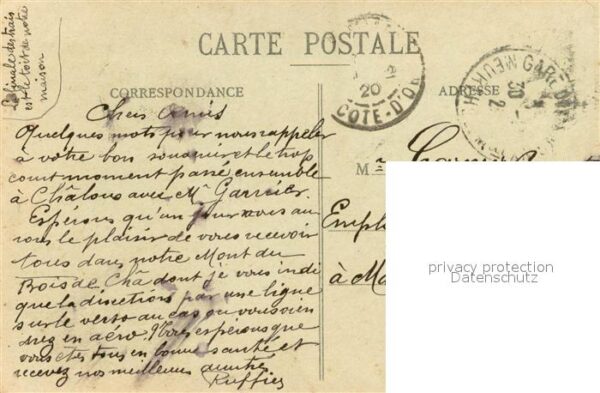 CARTE POSTALE
CORRESPONDANCE
ADRESSE
est le toit de notre
maison
Chers Amis
Quelques mots pour nous rappeler
à votre bon souvenir et le trop
court moment passé ensemble
à Châlons avec Mr Garnier.
Espérons qu'un jour nous au
rons le plaisir de vous recevoir
tous dans notre Mont du
Bois de Châ dont je vous indi
que la direction par une ligne
sur le verso au cas ou vous vien
drez en aéro. Nous espérons que
vous êtes tous en bonne santé et
recevez nos meilleures amitiés
Ruffier
M
Emplo
à Ma
20
COTE-D'OR
GARE
30
privacy protection
Datenschutz